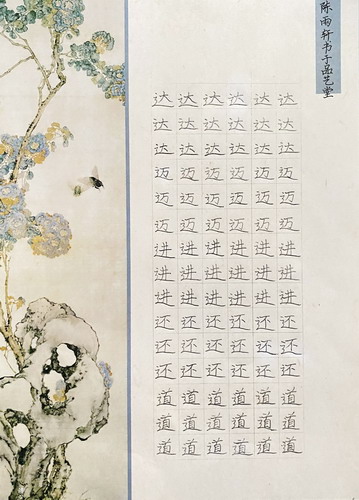 陈雨轩书于品艺堂
达达达达达达
达达达达达达
达达达达达达
迈迈迈迈迈迈
迈迈迈迈迈迈
迈迈迈迈迈迈
进进进进进进
进进进进进进
进进进进进进
还还还还还还
还还还还还还
还还还还还还
道道道道道道
道道道道道道
道道道道道道